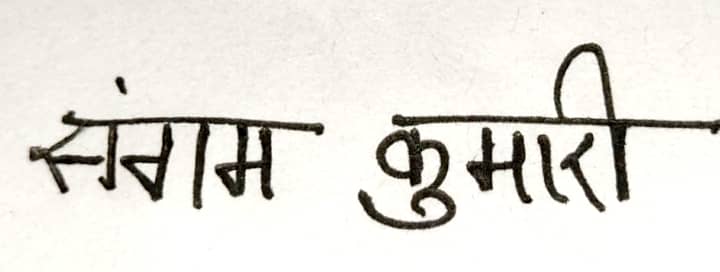 संगम कुमारी